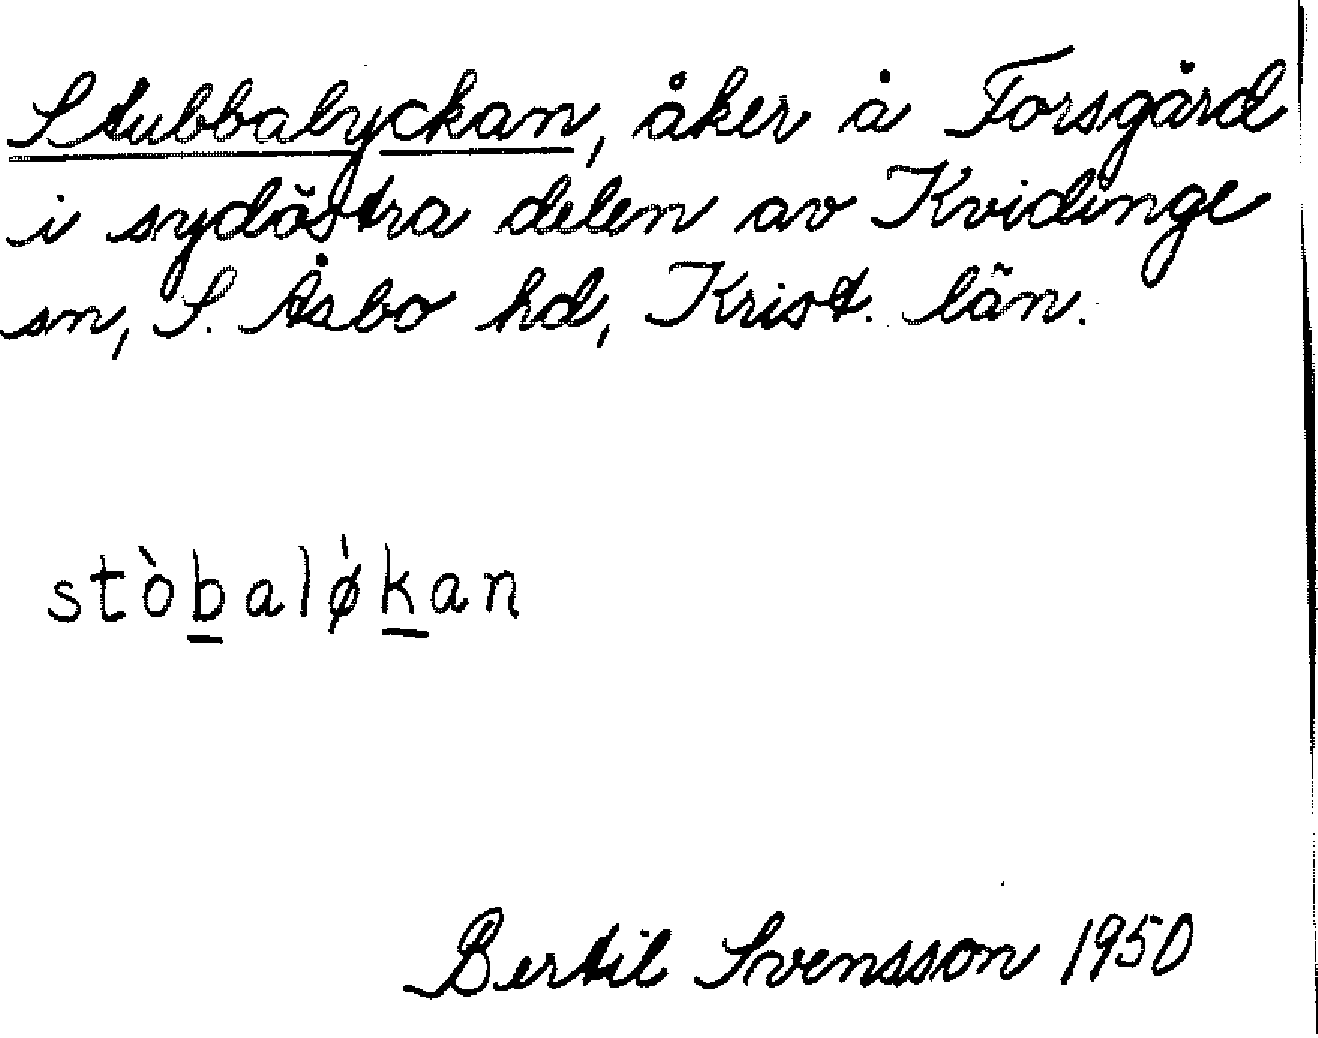 Stubbalyckan, åker å Forsgård
i sydöstra delen av Kvidinge
sn, S. Åsbo hd, Krist. län.
stòbalǿkan
Bertil Svensson 1950